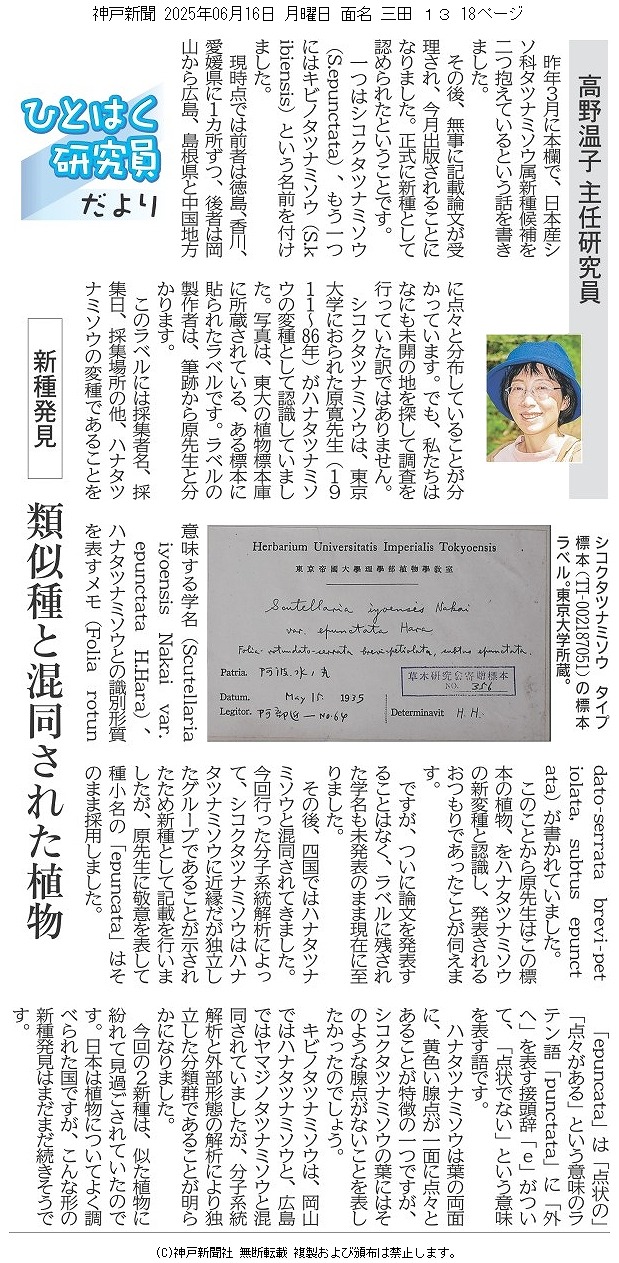 神戸新聞 2025年06月16日 月曜日 面名 三田 13 18ページ
ひとはく
研究員
だより
高野温子 主任研究員
新種発見
類似種と混同された植物
昨年3月に本欄で、日本産シ
ソ科タツナミソウ属新種候補を
二つ抱えているという話を書き
ました。
その後、無事に記載論文が受
理され、今月出版されることに
なりました。正式に新種として
認められたということです。
一つはシコクタツナミソウ
(S.epunctata)、もう一つ
にはキビノタツナミソウ(S.k
ibiensis)という名前を付け
ました。
現時点では前者は徳島、香川、
愛媛県に1カ所ずつ、後者は岡
山から広島、島根県と中国地方
に点々と分布していることが分
かっています。でも、私たちは
なにも未開の地を探して調査を
行っていた訳ではありません。
シコクタツナミソウは、東京
大学におられた原寛先生(19
11~86年)がハナタツナミソ
ウの変種として認識していまし
た。写真は、東大の植物標本庫
に所蔵されている、ある標本に
貼られたラベルです。ラベルの
製作者は、筆跡から原先生と分
かります。
このラベルには採集者名、採
集日、採集場所の他、ハナタツ
ナミソウの変種であることを
シコクタツナミソウ タイプ
標本(TI-00218705)の標本
ラベル。東京大学所蔵。
Herbarium Universitatis Imperialis Tokyoensis
東京帝國大學理學部植物學教室
Scutellaria iyoensis Nakai
var. epunctata Hara
Folia rotundato-serrata brevi-petiolata, subtus epunctata.
Patria.
Datum. May 15. 1935
Legitor. No. 64
Determinavit H. H.
草木研究会寄贈標本
NO. 356
意味する学名(Scutellaria
iyoensis Nakai var.
epunctata H.Hara)、
ハナタツナミソウとの識別形質
を表すメモ(Folia rotun
dato-serrata brevi-pet
iolata, subtus epunct
ata)が書かれていました。
このことから原先生はこの標
本の植物、をハナタツナミソウ
の新変種と認識し、発表される
おつもりであったことが伺えま
す。
ですが、ついに論文を発表す
ることはなく、ラベルに残され
た学名も未発表のまま現在に至
りました。
その後、四国ではハナタツナ
ミソウと混同されてきました。
今回行った分子系統解析によっ
て、シコクタツナミソウはハナ
タツナミソウに近縁だが独立し
たグループであることが示され
たため新種として記載を行いま
したが、原先生に敬意を表して
種小名の「epuncata」はそ
のまま採用しました。
「epuncata」は「点状の」
「点々がある」という意味のラ
テン語「punctata」に「外
へ」を表す接頭辞「e」がつい
て、「点状でない」という意味
を表す語です。
ハナタツナミソウは葉の両面
に、黄色い腺点が一面に点々と
あることが特徴の一つですが、
シコクタツナミソウの葉にはそ
のような腺点がないことを表し
たかったのでしょう。
キビノタツナミソウは、岡山
ではハナタツナミソウと、広島
ではヤマジノタツナミソウと混
同されていましたが、分子系統
解析と外部形態の解析により独
立した分類群であることが明ら
かになりました。
今回の2新種は、似た植物に
紛れて見過ごされていたので
す。日本は植物についてよく調
べられた国ですが、こんな形の
新種発見はまだまだ続きそうで
す。
(C)神戸新聞社 無断転載 複製および頒布は禁止します。